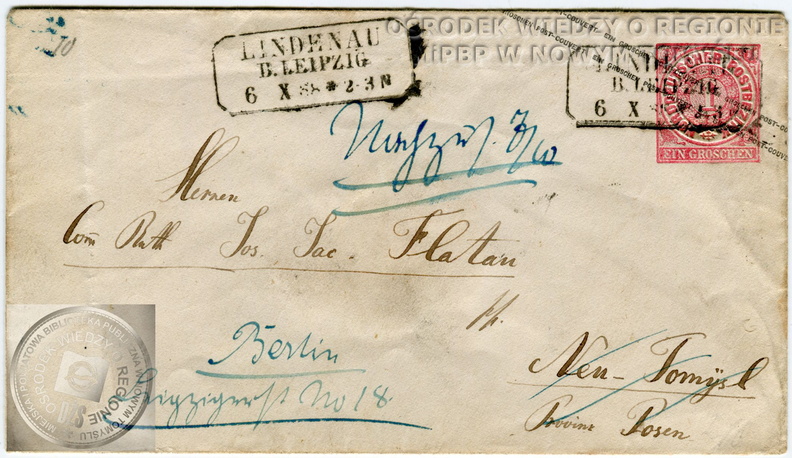 OŚRODEK WIEDZY O REGIONIE
MiPBP W NOWYM
LINDENAU
B. LEIPZIG
6 X 88 * 2-3 N
B. LEIPZIG
6 X
EIN GROSCHEN
10
Nachges. 7/10
Herren
Com Rath Jos. Jac. Flatau
Berlin
Leipzigerst No 18
Neu-Tomysl
Provinz Posen
MIEJSKA I POWIATOWA BIBLIOTEKA PUBLICZNA W NOWYM TOMYŚLU
OŚRODEK WIEDZY O REGIONIE